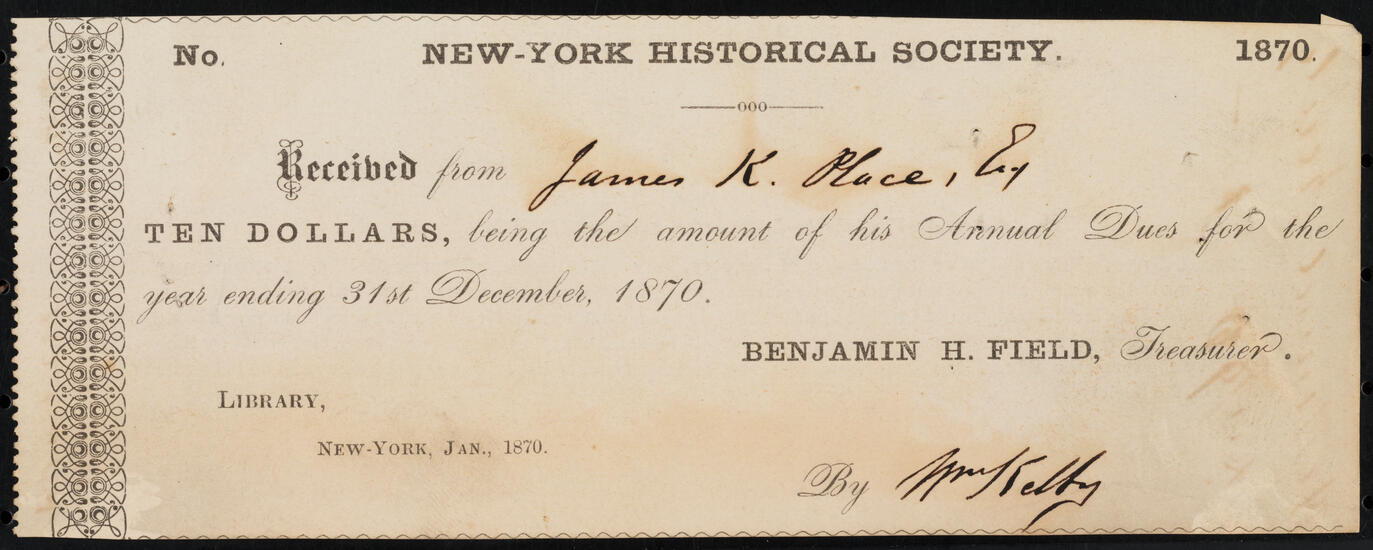 No. NEW-YORK HISTORICAL SOCIETY. 1870.
Received from James K. Place, Esq
TEN DOLLARS, being the amount of his Annual Dues for the
year ending 31st December, 1870.
BENJAMIN H. FIELD, Treasurer.
LIBRARY,
NEW-YORK, JAN., 1870.
By Wm Kelby